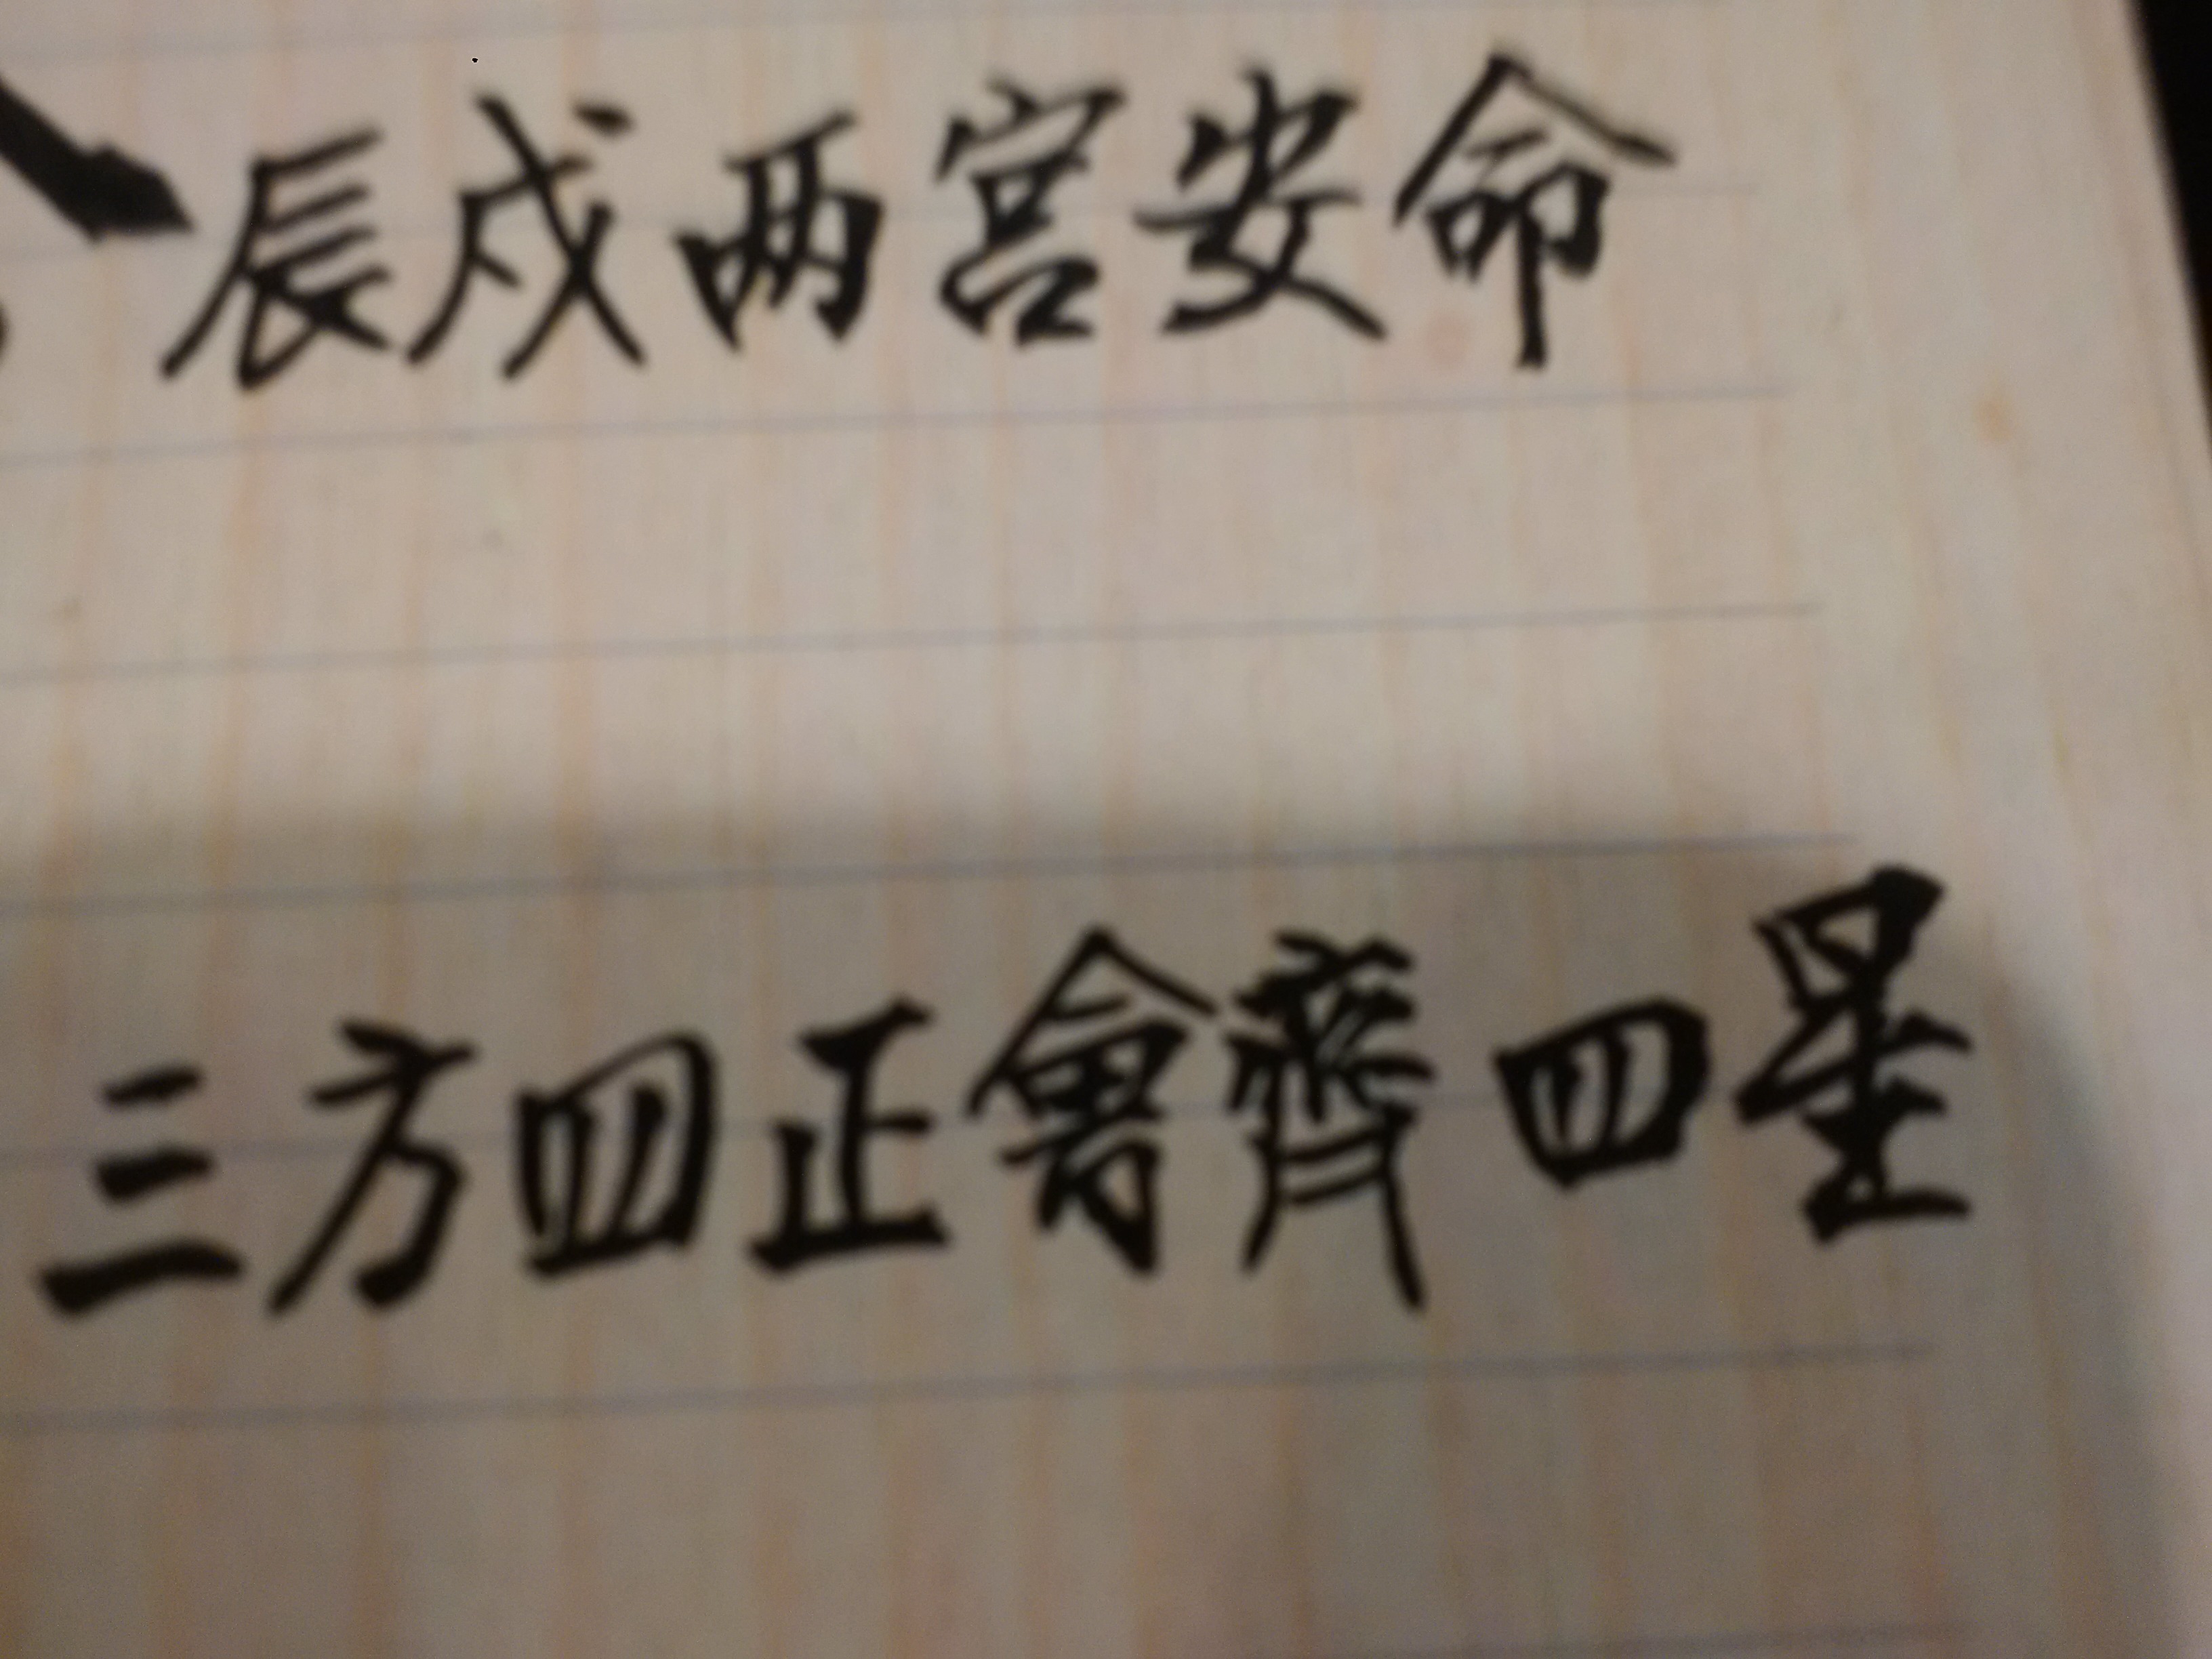 辰戌两宫安命
三方四正會齊四星